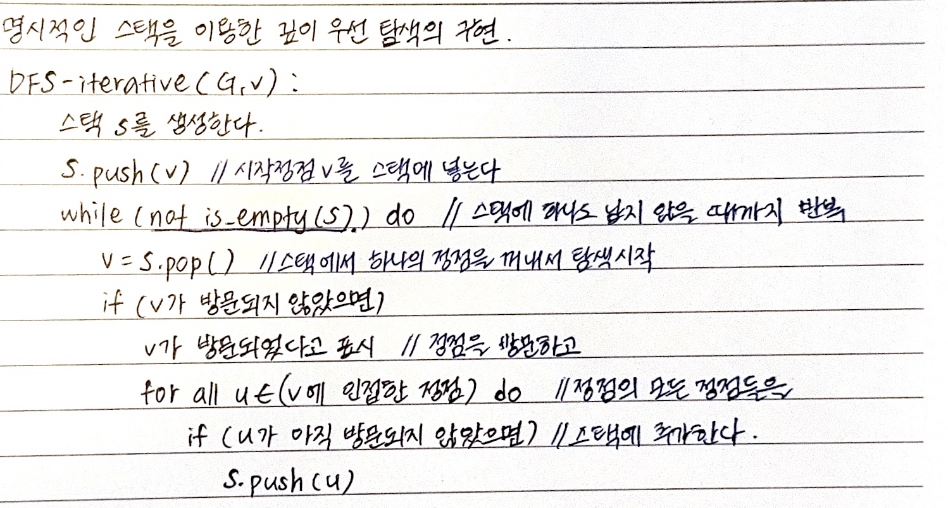 명시적인 스택을 이용한 깊이 우선 탐색의 구현.
DFS-iterative(G,v):
스택 S를 생성한다.
S.push(v) // 시작정점 v를 스택에 넣는다
while (not is_empty(S).) do // 스택에 하나도 남지 않을 때까지 반복
v = S.pop() // 스택에서 하나의 정점을 꺼내서 탐색시작
if (v가 방문되지 않았으면)
v가 방문되었다고 표시 // 정점을 방문하고
for all u∈(v에 인접한 정점) do // 정점의 모든 정점들을
if (u가 아직 방문되지 않았으면) // 스택에 추가한다.
S.push(u)